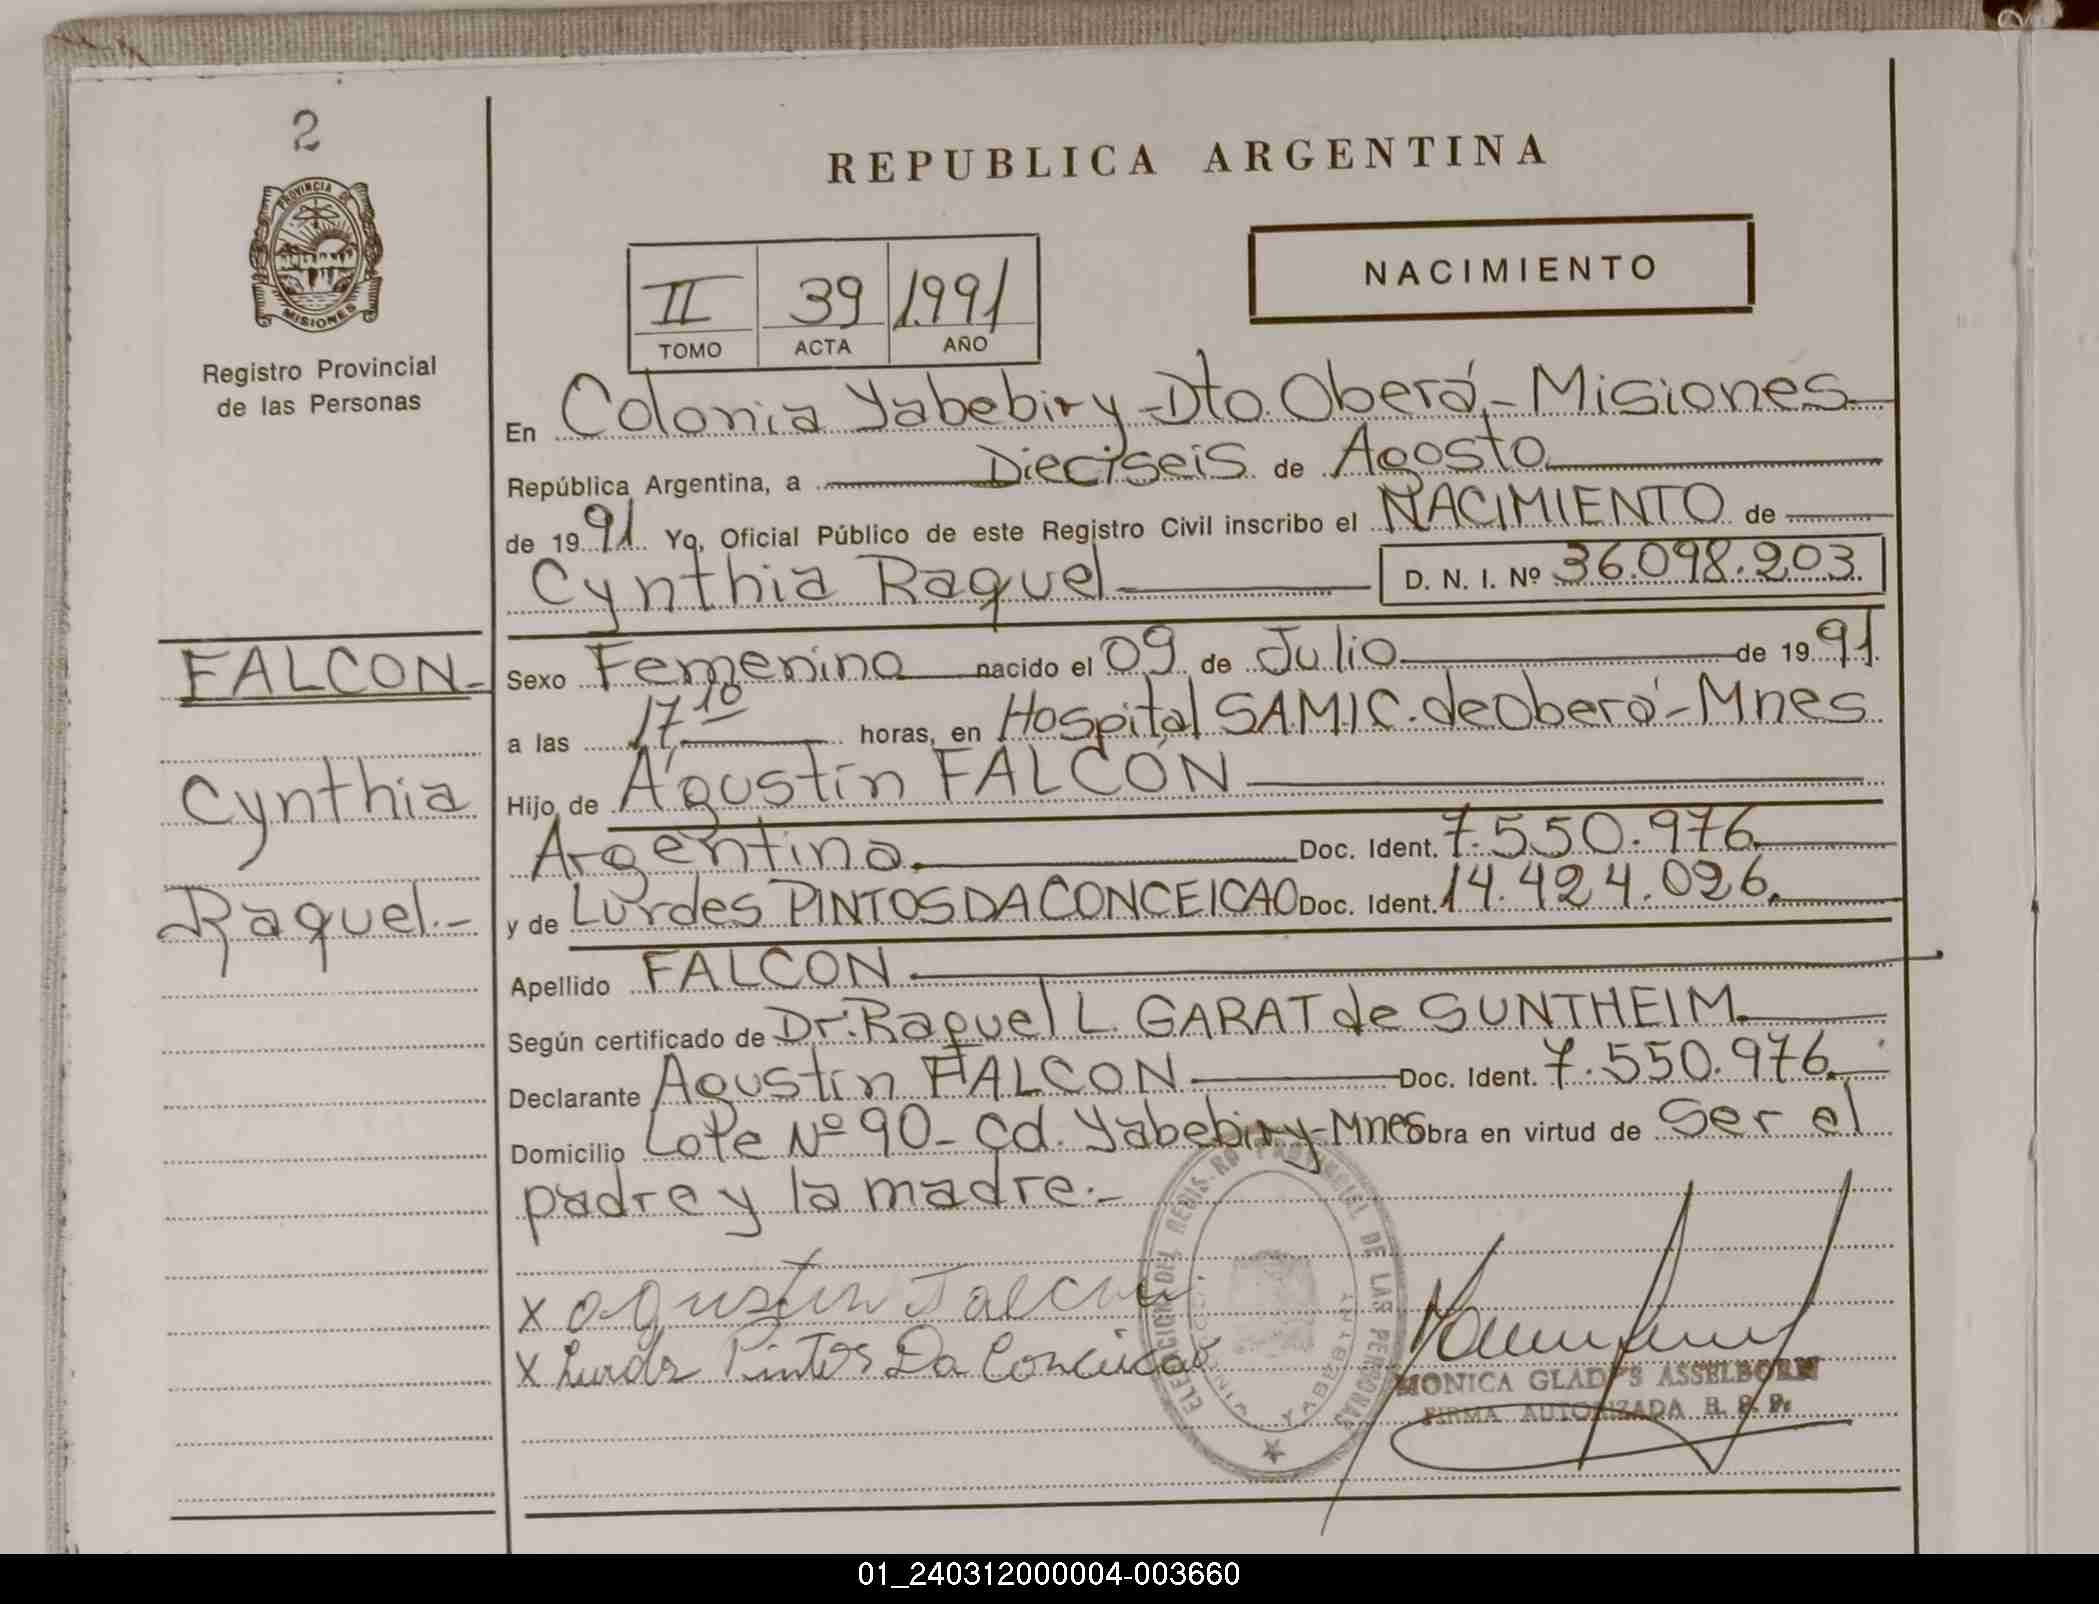 2
PROVINCIA DE
MISIONES
Registro Provincial
de las Personas
FALCON-
Cynthia
Raquel.-
REPUBLICA ARGENTINA
NACIMIENTO
II 39 1.991
TOMO ACTA AÑO
En Colonia Yabebiry-Dto. Oberá,-Misiones
República Argentina, a Dieciseis de Agosto
de 1991 Yo, Oficial Público de este Registro Civil inscribo el NACIMIENTO de
Cynthia Raquel D. N. I. Nº 36.098.203.
Sexo Femenino nacido el 09 de Julio de 1991.
a las 17,10 horas, en Hospital SAMIC. de Oberá-Mnes
Hijo de Agustín FALCÓN
Argentino. Doc. Ident. 7.550.976
y de Lurdes PINTOS DA CONCEICAO Doc. Ident. 14.424.026.
Apellido FALCON
Según certificado de Dr. Raquel L. GARAT de SUNTHEIM.
Declarante Agustín FALCON Doc. Ident. 7.550.976.
Domicilio Lote Nº 90- Cd. Yabebiry-Mnes Obra en virtud de Ser el
padre y la madre.-
x agustin Falcon
x Lurdes Pintos Da Conceicao
PROVINCIAL DE LAS PERSONAS
YABEBIRY
MONICA GLADYS ASSELBORN
FIRMA AUTORIZADA R. P. P.
01_240312000004-003660